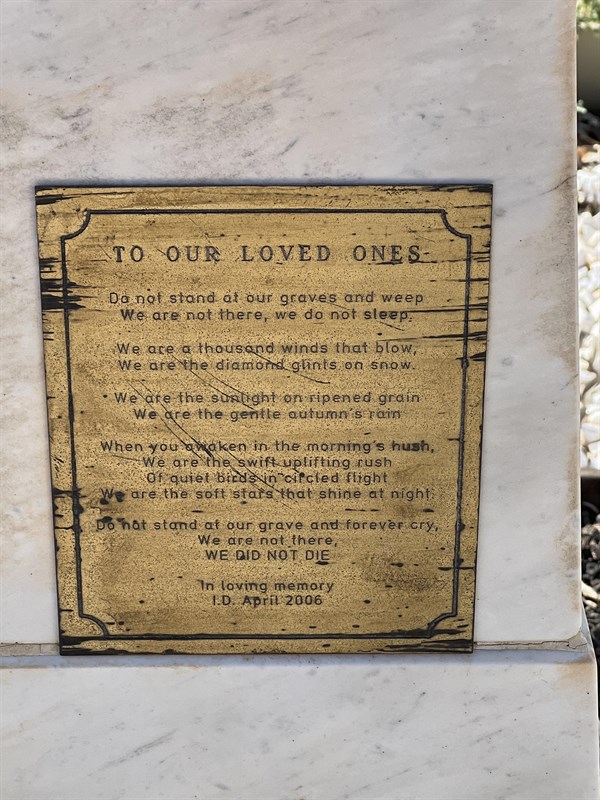 TO OUR LOVED ONES
Do not stand at our graves and weep
We are not there, we do not sleep.
We are a thousand winds that blow,
We are the diamond glints on snow.
We are the sunlight on ripened grain
We are the gentle autumn's rain
When you awaken in the morning's hush,
We are the swift uplifting rush
Of quiet birds in circled flight
We are the soft stars that shine at night.
Do not stand at our grave and forever cry,
We are not there,
WE DID NOT DIE
In loving memory
I.D. April 2006